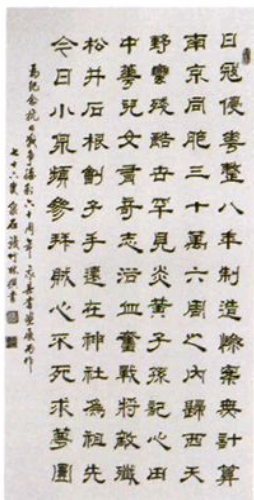 日寇侵華整八年制造慘案無計算
南京同胞三十萬六周之内歸西天
野蠻殘酷古罕見炎黃子孫記心田
中華兒女奇志浴血奮戰將敵殲
松井石根劊子手還在神社為祖先
今日小泉頻參拜賊心不死求夢圓
為紀念抗日戰爭勝利六十周年書畫展而作
七十六叟石竹林撰書